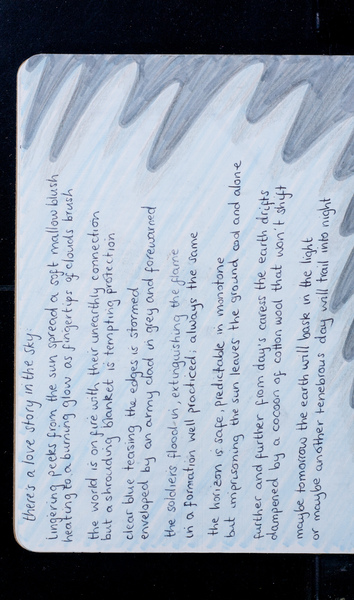 there's a love story in the sky.
lingering pecks from the sun spread a soft mallow blush
heating to a burning glow as fingertips of clouds brush
the world is on fire with their unearthly connection
but a shrouding blanket is tempting protection
clear blue teasing the edges is stormed
enveloped by an army clad in grey and forewarned
the soldiers flood in, extinguishing the flame
in a formation well practiced; always the same
the horizon is safe, predictable in monotone
but imprisoning the sun leaves the ground cool and alone
further and further from day's caress the earth drifts
dampened by a cocoon of cotton wool that won't shift
maybe tomorrow the earth will bask in the light
or maybe another tenebrous day will trail into night